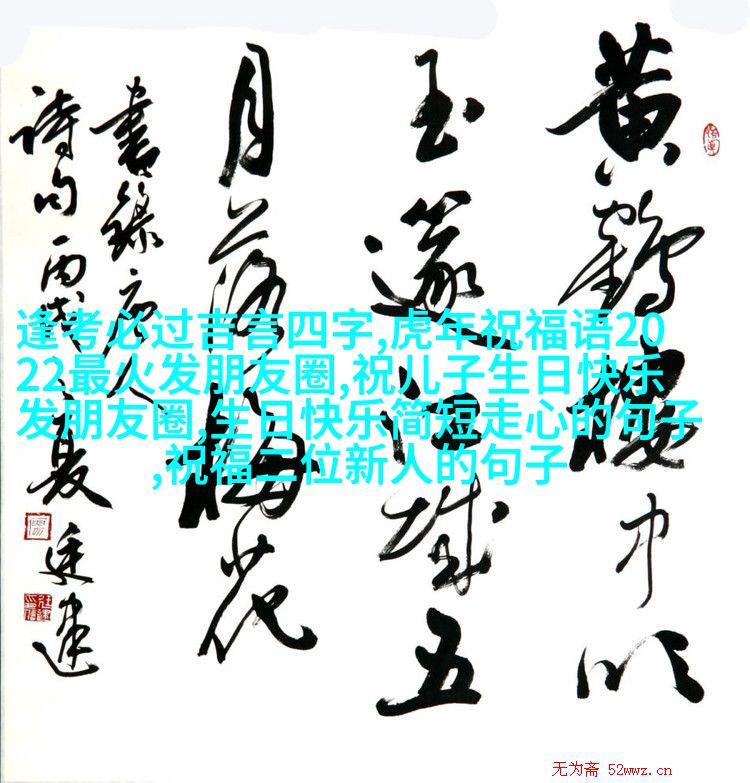 黄鶴樓中吹
玉篴江城五
月落梅花
書錄唐人
詩句丙戌夏廷建
逢考必过吉言四字,虎年祝福语20
22最火发朋友圈,祝儿子生日快乐
发朋友圈,生日快乐简短走心的句子
,祝福二位新人的句子
无为斋 52wwz.cn